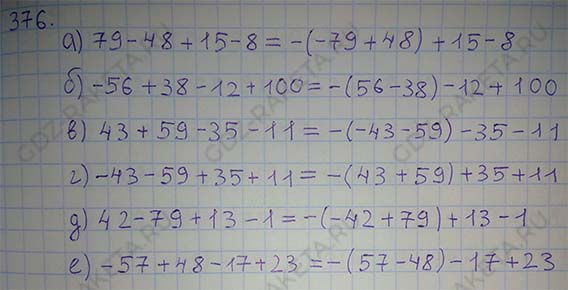 376.
а) 79-48+15-8=-(-79+48)+15-8
б) -56+38-12+100=-(56-38)-12+100
в) 43+59-35-11=-(-43-59)-35-11
г) -43-59+35+11=-(43+59)+35+11
д) 42-79+13-1=-(-42+79)+13-1
е) -57+48-17+23=-(57-48)-17+23
GDZ-RAKETA.RU